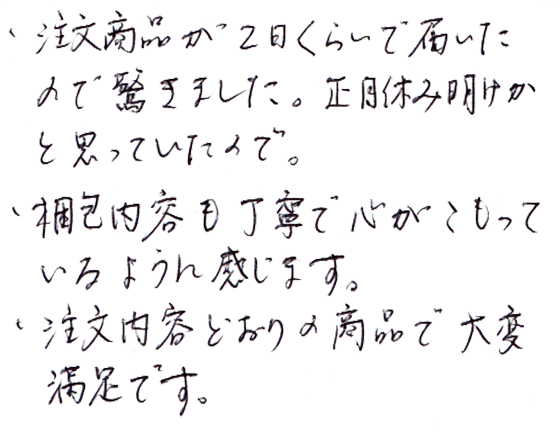 、注文商品が2日くらいで届いた
ので驚きました。正月休み明けか
と思っていたので。
、梱包内容も丁寧で心がこもって
いるように感じます。
、注文内容どおりの商品で大変
満足です。